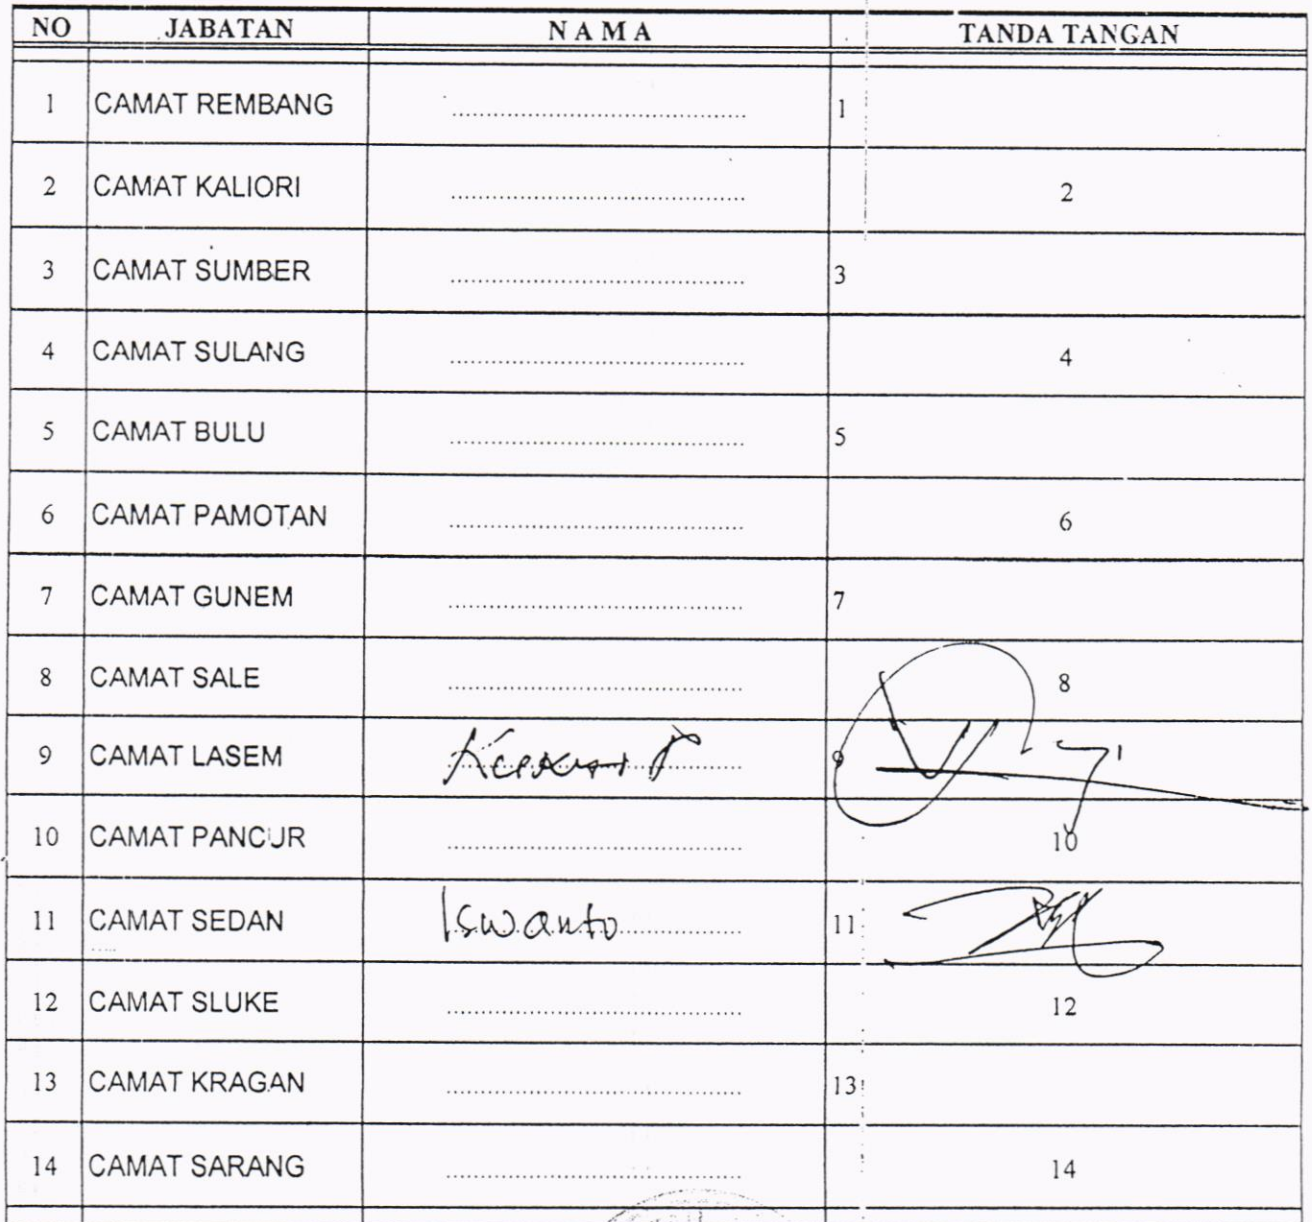 NO JABATAN N A M A TANDA TANGAN
1 CAMAT REMBANG .................................... 1
2 CAMAT KALIORI .................................... 2
3 CAMAT SUMBER .................................... 3
4 CAMAT SULANG .................................... 4
5 CAMAT BULU .................................... 5
6 CAMAT PAMOTAN .................................... 6
7 CAMAT GUNEM .................................... 7
8 CAMAT SALE .................................... 8
9 CAMAT LASEM 9
10 CAMAT PANCUR .................................... 10
11 CAMAT SEDAN Iswanto 11
12 CAMAT SLUKE .................................... 12
13 CAMAT KRAGAN .................................... 13
14 CAMAT SARANG .................................... 14